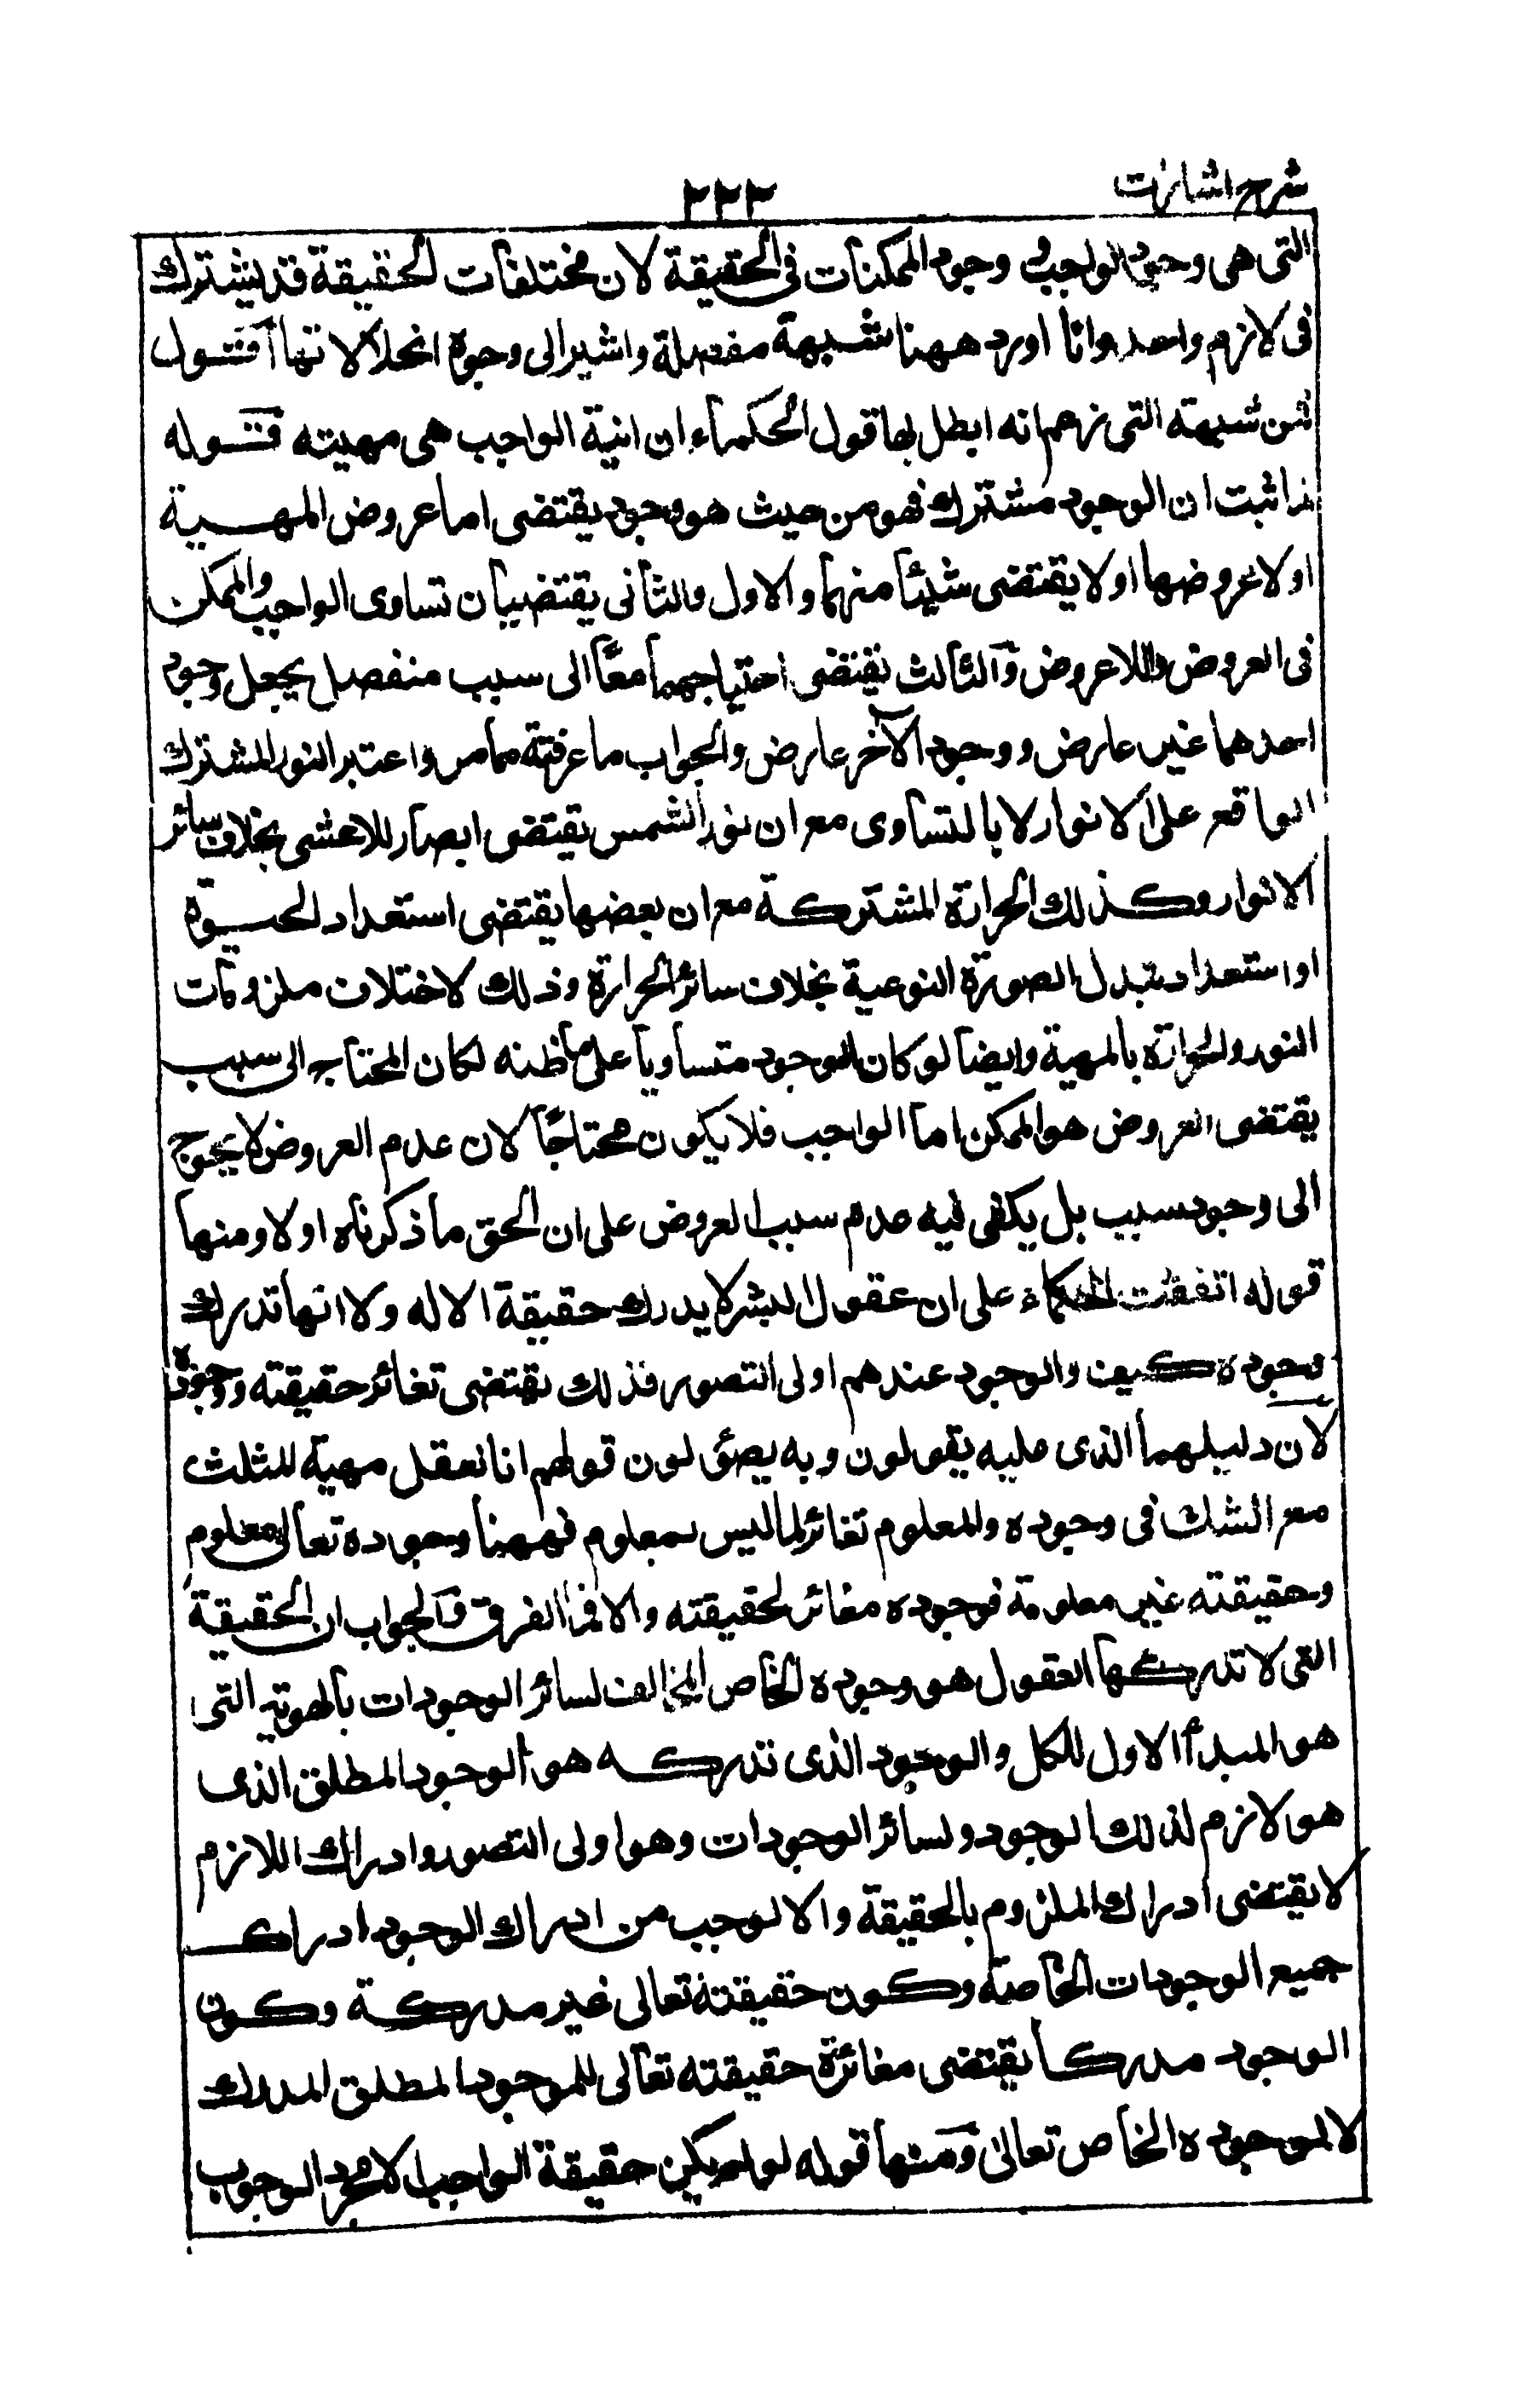 شرح اشارت
٢٢٣
التى هى وجود الواجب و وجود الممكنات فى الحقيقة لان مختلفات الحقيقة قد يشترك
فى لازم واحد وانا اورد ههنا شبهة مفصلة واشير الى وجوه انحلالاتها اقول
فمن شبهته التى زعم انه ابطل بها قول الحكماء ان انية الواجب هى مهيته قوله
ثبت ان الوجود مشترك فهو من حيث هو وجود يقتضى اما عروض المهية
او لا عروضها او لا يقتضى شيئا منهما والاول والثانى يقتضيان تساوى الواجب والممكن
فى العروض واللاعروض والثالث يقتضى احتياجهما معا الى سبب منفصل يجعل وجود
احدهما غير عارض ووجود الآخر عارض والجواب ما عرفته مما مر واعتبر النور المشترك
الواقع على الانوار لا بالتساوى مع ان نور الشمس يقتضى ابصار للاعشى بخلاف سائر
الانوار وكذلك الحرارة المشتركة مع ان بعضها يقتضى استعداد الحيوة
او استعداد تبدل الصورة النوعية بخلاف سائر الحرارة وذلك لاختلاف ملزومات
النور والحرارة بالمهية وايضا لو كان الوجود متساويا على ما ظنه لكان المحتاج الى سبب
يقتضى العروض هو الممكن اما الواجب فلا يكون محتاجا لان عدم العروض لا يحوج
الى وجود سبب بل يكفى فيه عدم سبب العروض على ان الحق ما ذكرناه اولا ومنها
قوله اتفقت الحكماء على ان عقول البشر لا يدرك حقيقة الاله ولا انها تدرك
وجوده كيف والوجود عندهم اولى التصور فذلك يقتضى تغائر حقيقته ووجوده
لان دليلهما الذى عليه يقولون وبه يصئولون قولهم انا نعقل مهية المثلث
مع الشك فى وجوده والمعلوم تغائر لما ليس بمعلوم فههنا وجوده تعالى معلوم
وحقيقته غير معلومة فوجوده مغائر لحقيقته والا فما الفرق والجواب ان الحقيقة
التى لا تدركها العقول هو وجوده الخاص المخالف لسائر الوجودات بالهوية التى
هو المبدأ الاول للكل والوجود الذى تدركه هو الوجود المطلق الذى
هو لازم لذلك الوجود ولسائر الوجودات وهو اولى التصور وادراك اللازم
لا يقتضى ادراك الملزوم بالحقيقة والا لوجب من ادراك الوجود ادراك
جميع الوجودات الخاصة وكون حقيقته تعالى غير مدركة وكون
الوجود مدركا يقتضى مغائرة حقيقته تعالى للموجود المطلق المدرك
لا لموجوده الخاص تعالى ومنها قوله لو لم يكن حقيقة الواجب الا مجرد الوجوب